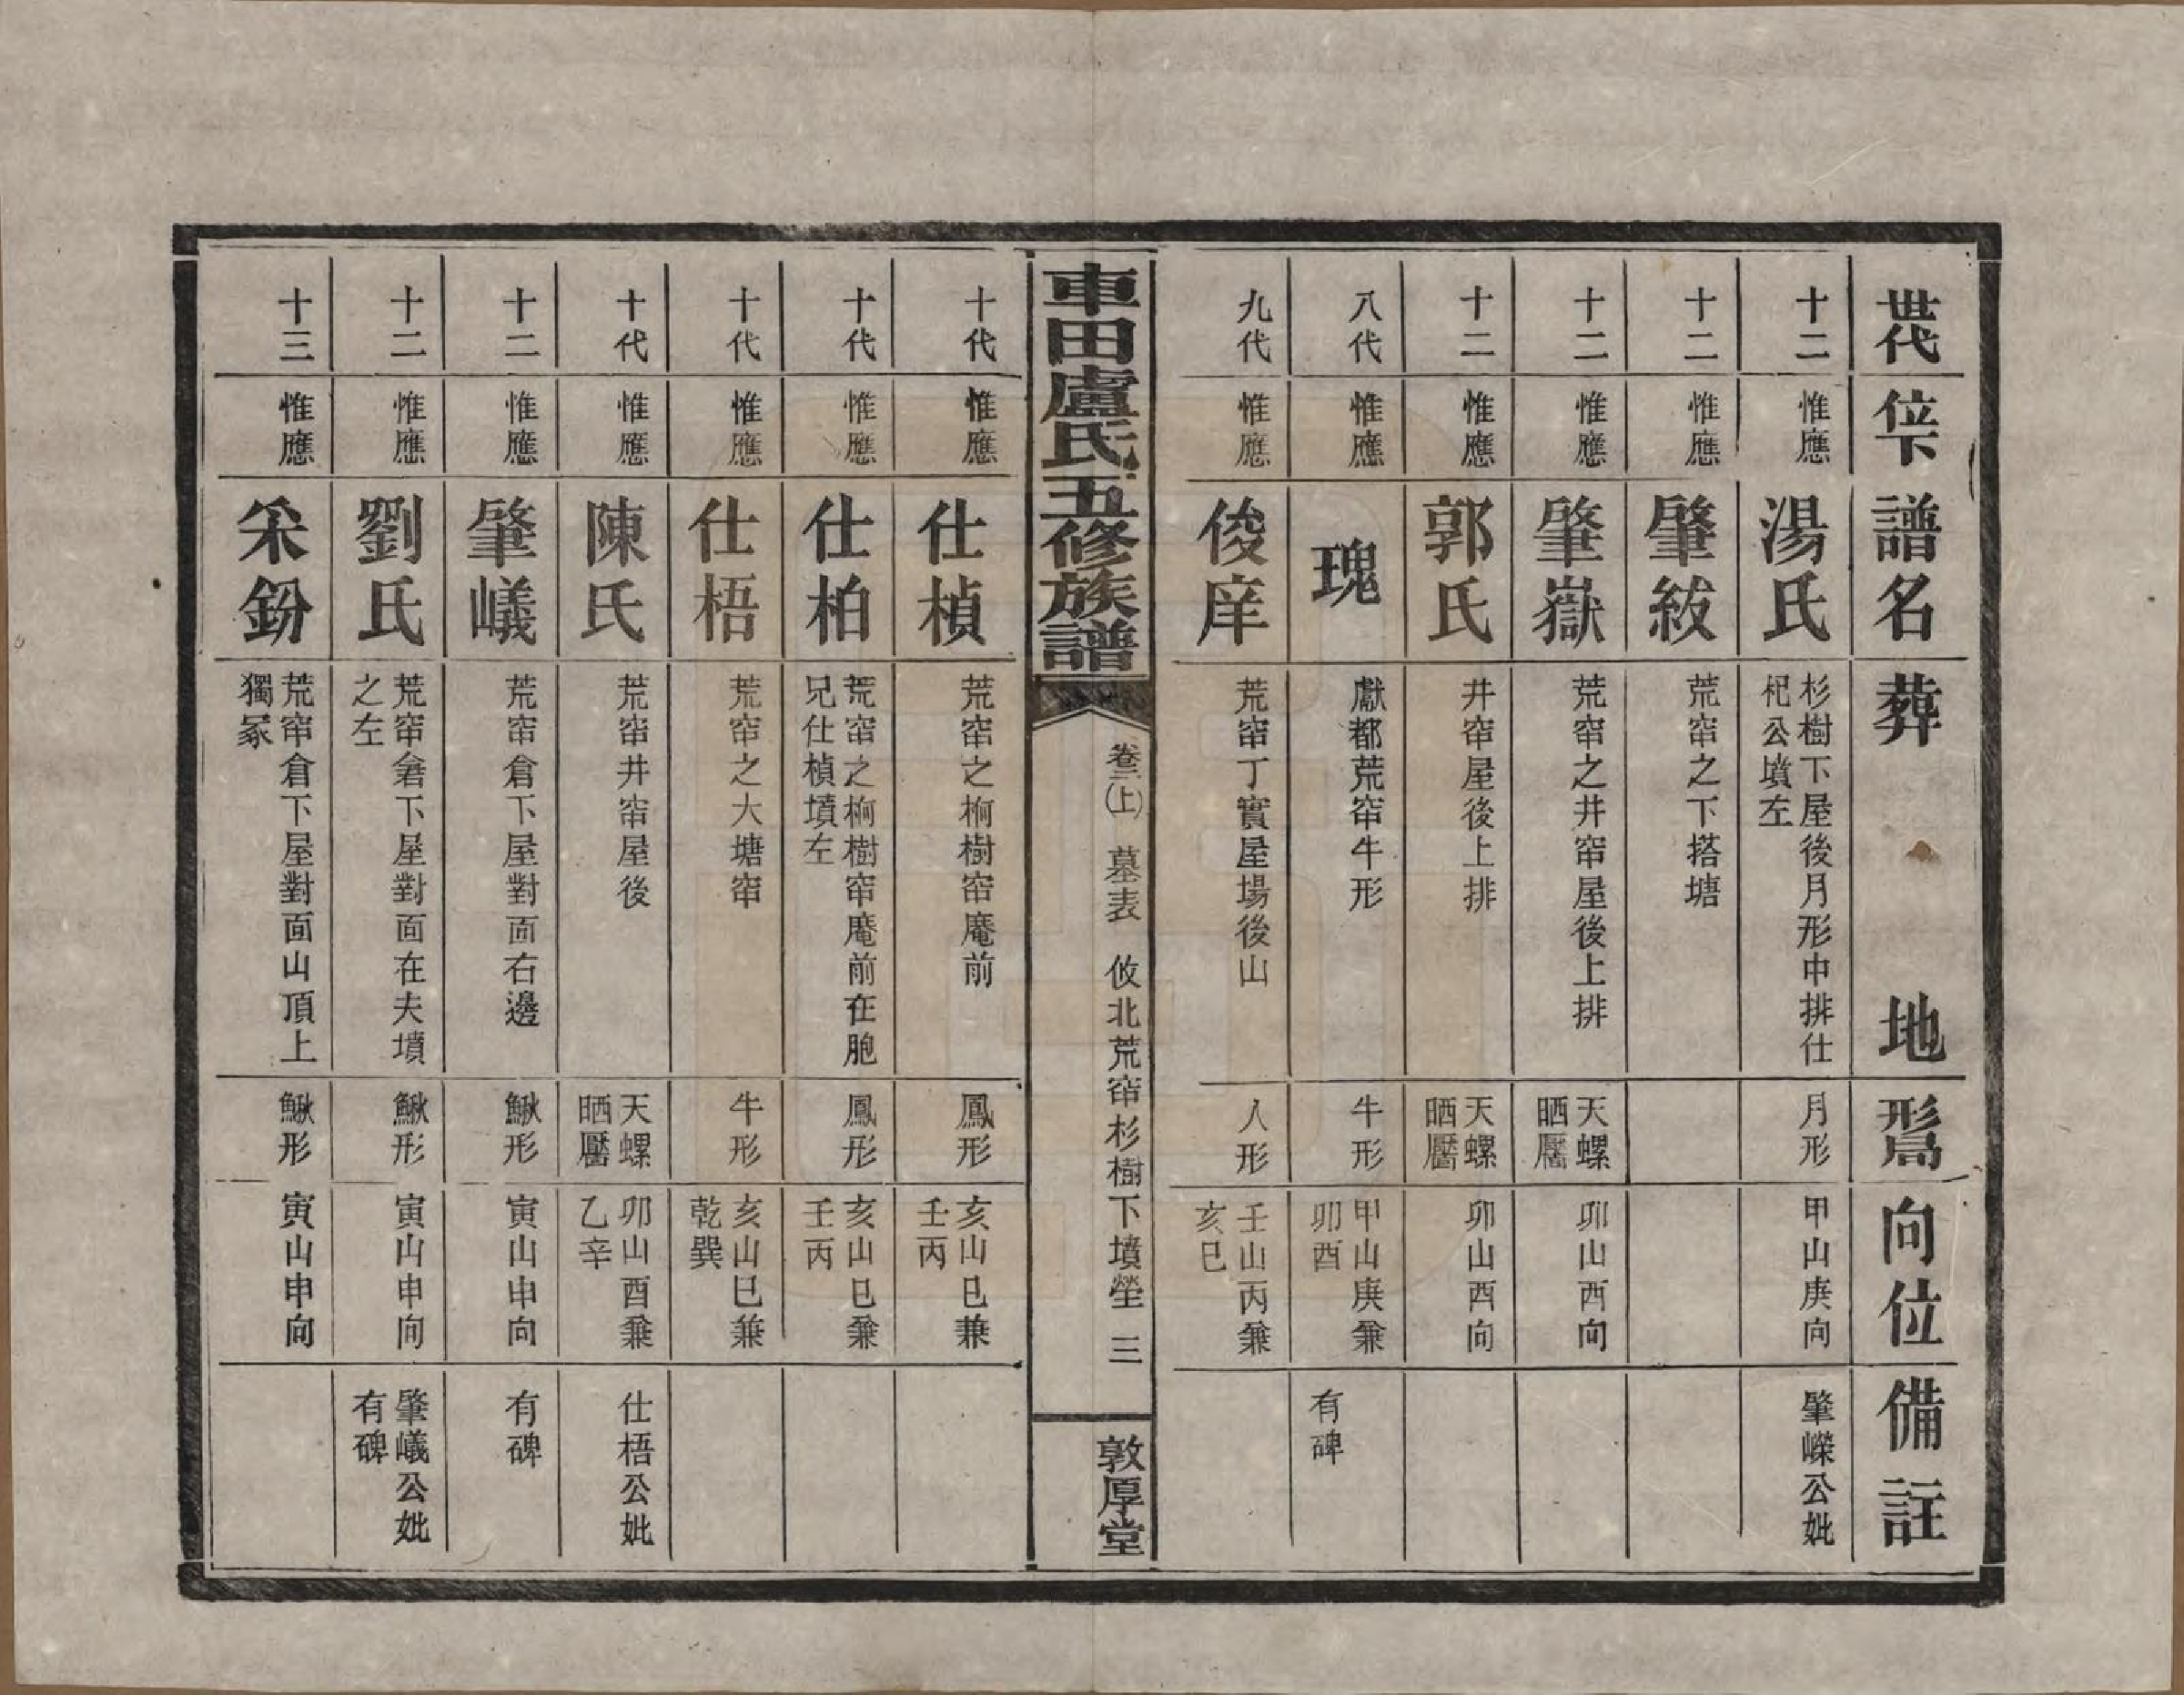 世代 位下 譜名 葬地 形寫 向位 備註
十二 惟應 湯氏 杉樹下屋後月形中排仕杞公墳左 月形 甲山庚向 肇嶸公妣
十二 惟應 肇紱 荒窂之下搭塘
十二 惟應 肇嶽 荒窂之井窂屋後上排 天螺晒靨 卯山酉向
十二 惟應 郭氏 井窂屋後上排 天螺晒靨 卯山酉向
八代 惟應 瑰 獻都荒窂牛形 牛形 甲山庚兼卯酉 有碑
九代 惟應 俊庠 荒窂丁實屋場後山 人形 壬山丙兼亥巳
車田盧氏五修族譜 卷二(上) 墓表 攸北荒窂杉樹下墳塋 三 敦厚堂
十代 惟應 仕楨 荒窂之桐樹窂庵前 鳳形 亥山巳兼壬丙
十代 惟應 仕柏 荒窂之桐樹窂庵前在胞兄仕楨墳左 鳳形 亥山巳兼壬丙
十代 惟應 仕梧 荒窂之大塘窂 牛形 亥山巳兼乾巽
十代 惟應 陳氏 荒窂井窂屋後 天螺晒靨 卯山酉兼乙辛 仕梧公妣
十二 惟應 肇嶬 荒窂倉下屋對面右邊 鰍形 寅山申向 有碑
十二 惟應 劉氏 荒窂倉下屋對面在夫墳之左 鰍形 寅山申向 肇嶬公妣有碑
十三 惟應 采鈖 荒窂倉下屋對面山頂上獨冢 鰍形 寅山申向